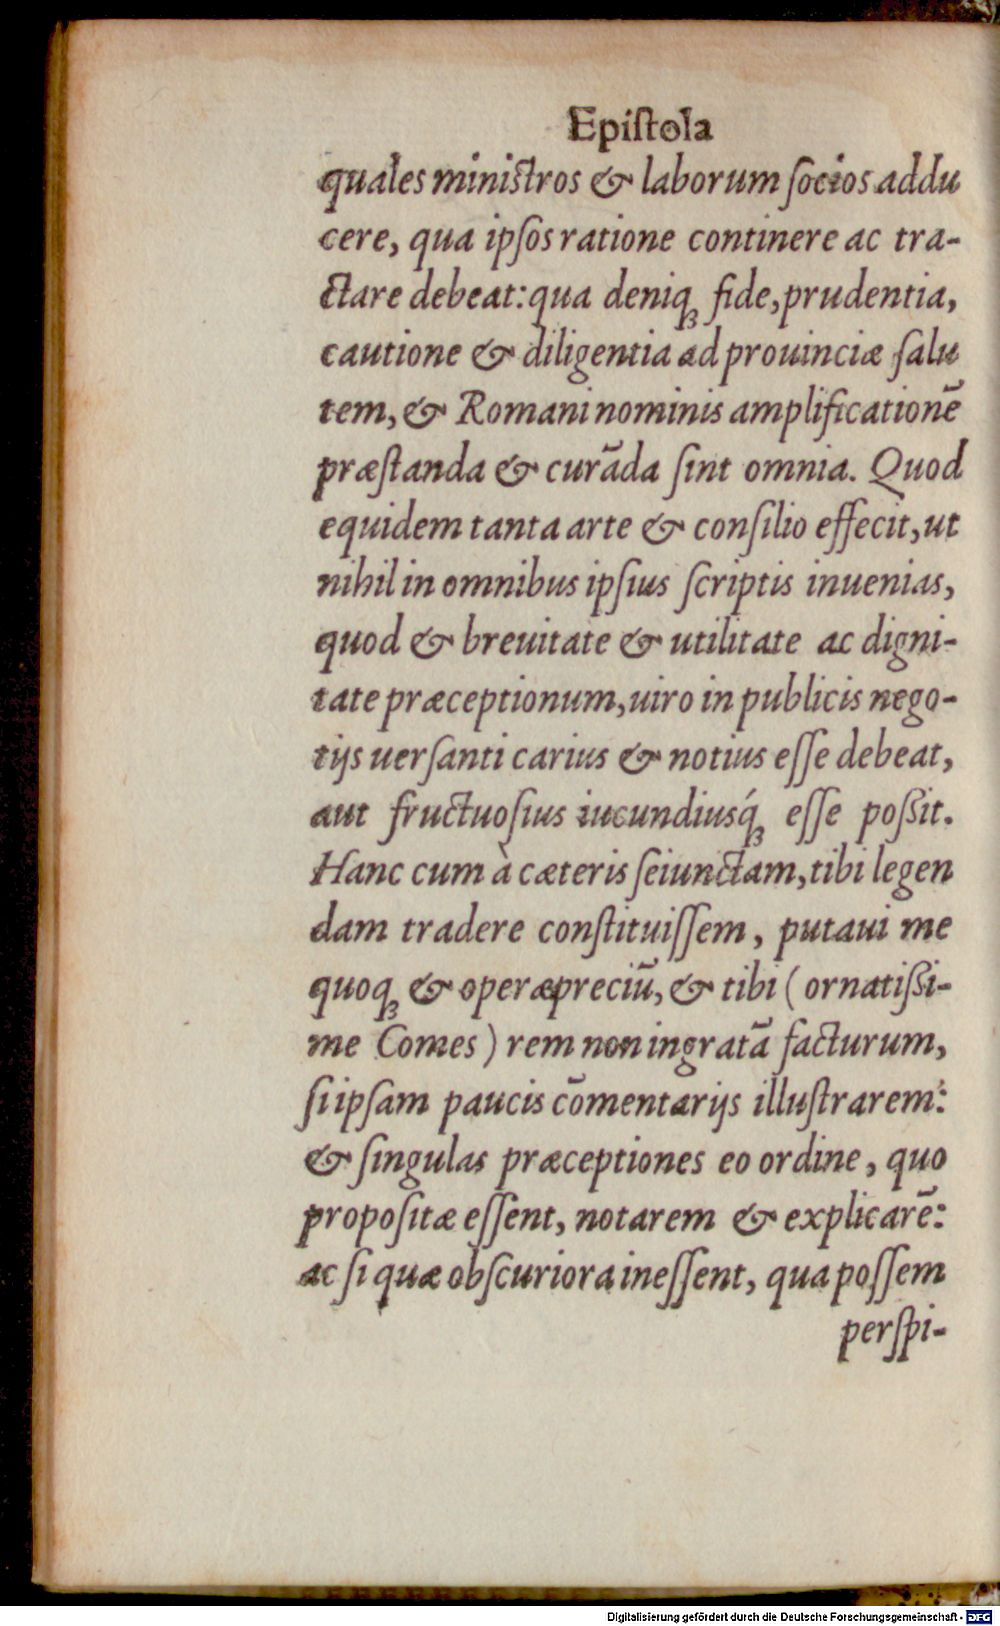 Epiſtola
quales miniſtros & laborum ſocios addu
cere, qua ipſos ratione continere ac tra-
ctare debeat: qua deniqꝫ fide, prudentia,
cautione & diligentia ad prouinciæ ſalu
tem, & Romani nominis amplificationē
præſtanda & curāda ſint omnia. Quod
equidem tanta arte & conſilio effecit, ut
nihil in omnibus ipſius ſcriptis inuenias,
quod & breuitate & utilitate ac digni-
tate præceptionum, uiro in publicis nego-
tijs uerſanti carius & notius eſſe debeat,
aut fructuoſius iucundiusq́ꝫ eſſe poßit.
Hanc cum à cæteris ſeiunctam, tibi legen
dam tradere conſtituiſſem, putaui me
quoqꝫ & operæpreciū, & tibi (ornatißi-
me Comes) rem non ingratā facturum,
ſi ipſam paucis cōmentarijs illuſtrarem:
& ſingulas præceptiones eo ordine, quo
propoſitæ eſſent, notarem & explicarē:
ac ſi quæ obſcuriora ineſſent, qua poſſem
perſpi-
Digitalisierung gefördert durch die Deutsche Forschungsgemeinschaft - DFG